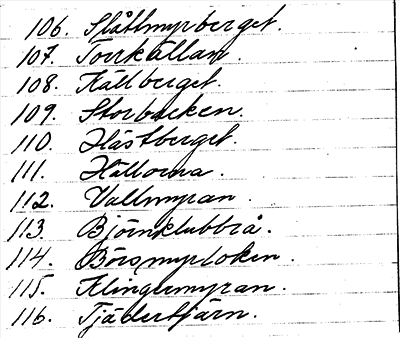 106. Slåttmyrberget.
107. Torrkällan.
108. Källberget.
109. Storbacken.
110. Hästberget.
111. Hällorna.
112. Vallmyran.
113. Björnklubbrå.
114.
115. Klingermyran.
116. Tjädertjärn.